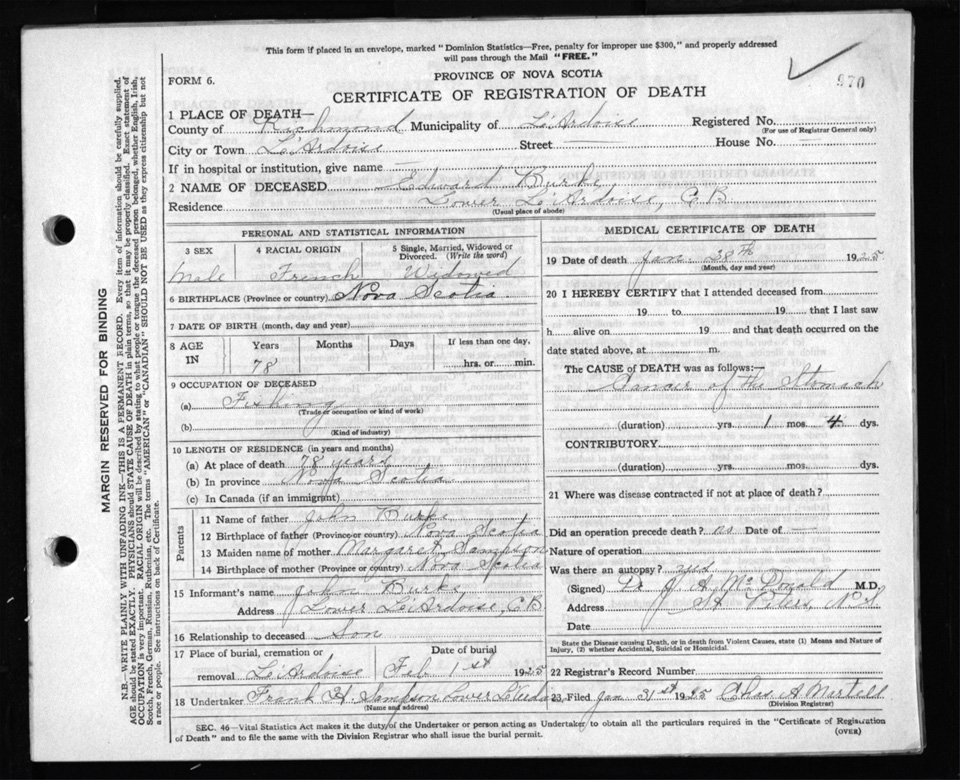 This form if placed in an envelope, marked "Dominion Statistics—Free, penalty for improper use $300," and properly addressed
will pass through the Mail "FREE."
FORM 6.
PROVINCE OF NOVA SCOTIA
970
CERTIFICATE OF REGISTRATION OF DEATH
1 PLACE OF DEATH—
County of Richmond Municipality of L'Ardoise Registered No.
(For use of Registrar General only)
City or Town L'Ardoise Street — House No.
If in hospital or institution, give name —
2 NAME OF DECEASED Edward Burke
Residence Lower L'Ardoise, C B
(Usual place of abode)
PERSONAL AND STATISTICAL INFORMATION
3 SEX 4 RACIAL ORIGIN 5 Single, Married, Widowed or
Divorced. (Write the word)
Male French Widowed
6 BIRTHPLACE (Province or country) Nova Scotia.
7 DATE OF BIRTH (month, day and year)
8 AGE IN Years Months Days If less than one day,
78 hrs. or min.
9 OCCUPATION OF DECEASED
(a) Fishing
(Trade or occupation or kind of work)
(b)
(Kind of industry)
10 LENGTH OF RESIDENCE (in years and months)
(a) At place of death 78 years
(b) In province Nova Scotia
(c) In Canada (if an immigrant)
Parents
11 Name of father John Burke
12 Birthplace of father (Province or country) Nova Scotia
13 Maiden name of mother Margaret Sampson
14 Birthplace of mother (Province or country) Nova Scotia
15 Informant's name John Burke
Address Lower L'Ardoise, C B
16 Relationship to deceased Son
17 Place of burial, cremation or Date of burial
removal L'Ardoise Feb 1st 1925
18 Undertaker Frank H. Sampson Lower L'Ardoise
(Name and address)
MEDICAL CERTIFICATE OF DEATH
19 Date of death Jan. 28th 1925
(Month, day and year)
20 I HEREBY CERTIFY that I attended deceased from
19 to 19 that I last saw
h alive on 19 and that death occurred on the
date stated above, at m.
The CAUSE of DEATH was as follows:—
Cancer of the Stomach
(duration) yrs. 1 mos. 4 dys.
CONTRIBUTORY
(duration) yrs. mos. dys.
21 Where was disease contracted if not at place of death?
Did an operation precede death? no Date of —
Nature of operation
Was there an autopsy?
(Signed) Dr J. A. McDonald M.D.
Address St. Peters, N.S
Date
State the Disease causing Death, or in death from Violent Causes, state (1) Means and Nature of
Injury, (2) whether Accidental, Suicidal or Homicidal.
22 Registrar's Record Number
23 Filed Jan 31st 1925 Chas A Martell
(Division Registrar)
SEC. 46—Vital Statistics Act makes it the duty of the Undertaker or person acting as Undertaker to obtain all the particulars required in the "Certificate of Registration
of Death" and to file the same with the Division Registrar who shall issue the burial permit.
(OVER)
MARGIN RESERVED FOR BINDING
N.B.—WRITE PLAINLY WITH UNFADING INK—THIS IS A PERMANENT RECORD. Every item of information should be carefully supplied.
AGE should be stated EXACTLY. PHYSICIANS should STATE CAUSE OF DEATH in plain terms, so that it may be properly classified. Exact statement of
OCCUPATION is very important. RACIAL ORIGIN will be described by stating to what people or tongue the deceased person belonged, whether English, Irish,
Scotch, French, German, Russian, Ruthenian, etc. The terms "AMERICAN" or "CANADIAN" SHOULD NOT BE USED as they express citizenship but not
a race or people. See instructions on back of Certificate.